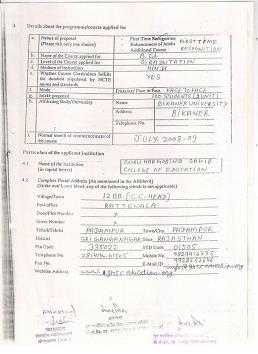 3. Details about the programme/course applied for
a. Nature of proposal
(Please tick only one choice)
First Time Recognition
Enhancement of Intake
Additional Course
FIRST TIME
RECOGNITION
b. Name of the Course applied for B.Ed.
c. Level of the Course applied for GRADUATION
d. Medium of Instruction HINDI
e. Whether Course Curriculum fulfills
the duration stipulated by NCTE
norms and standards
YES
f. Mode Distance/ Face to Face FACE TO FACE
g. Intake proposed 100 STUDENTS (1 UNIT)
h. Affiliating Body/University Name BIKANER UNIVERSITY
Address BIKANER
Telephone No.
i. Normal month of commencement of the
course
JULY 2008-09
4. Particulars of the applicant institution
4.1 Name of the Institution
(in capital letters)
GURU HARGOBIND SAHIB
COLLEGE OF EDUCATION
4.2 Complete Postal Address [As mentioned in the Affidavit]
(Strike out/ Leave blank any of the following which is not applicable)
Village/Town 12 BB. [C.C. HEAD]
Post office RATTEWALA
Door/Plot Number x
Street Number x
Tehsil/Taluka PADAMPUR Town/City PADAMPUR
District SRI GANGANAGAR State RAJASTHAN
Pin Code 335022 STD Code 01505
Telephone No. Mobile No. 9829416775
Fax No. E-MAIL ID
Website Address